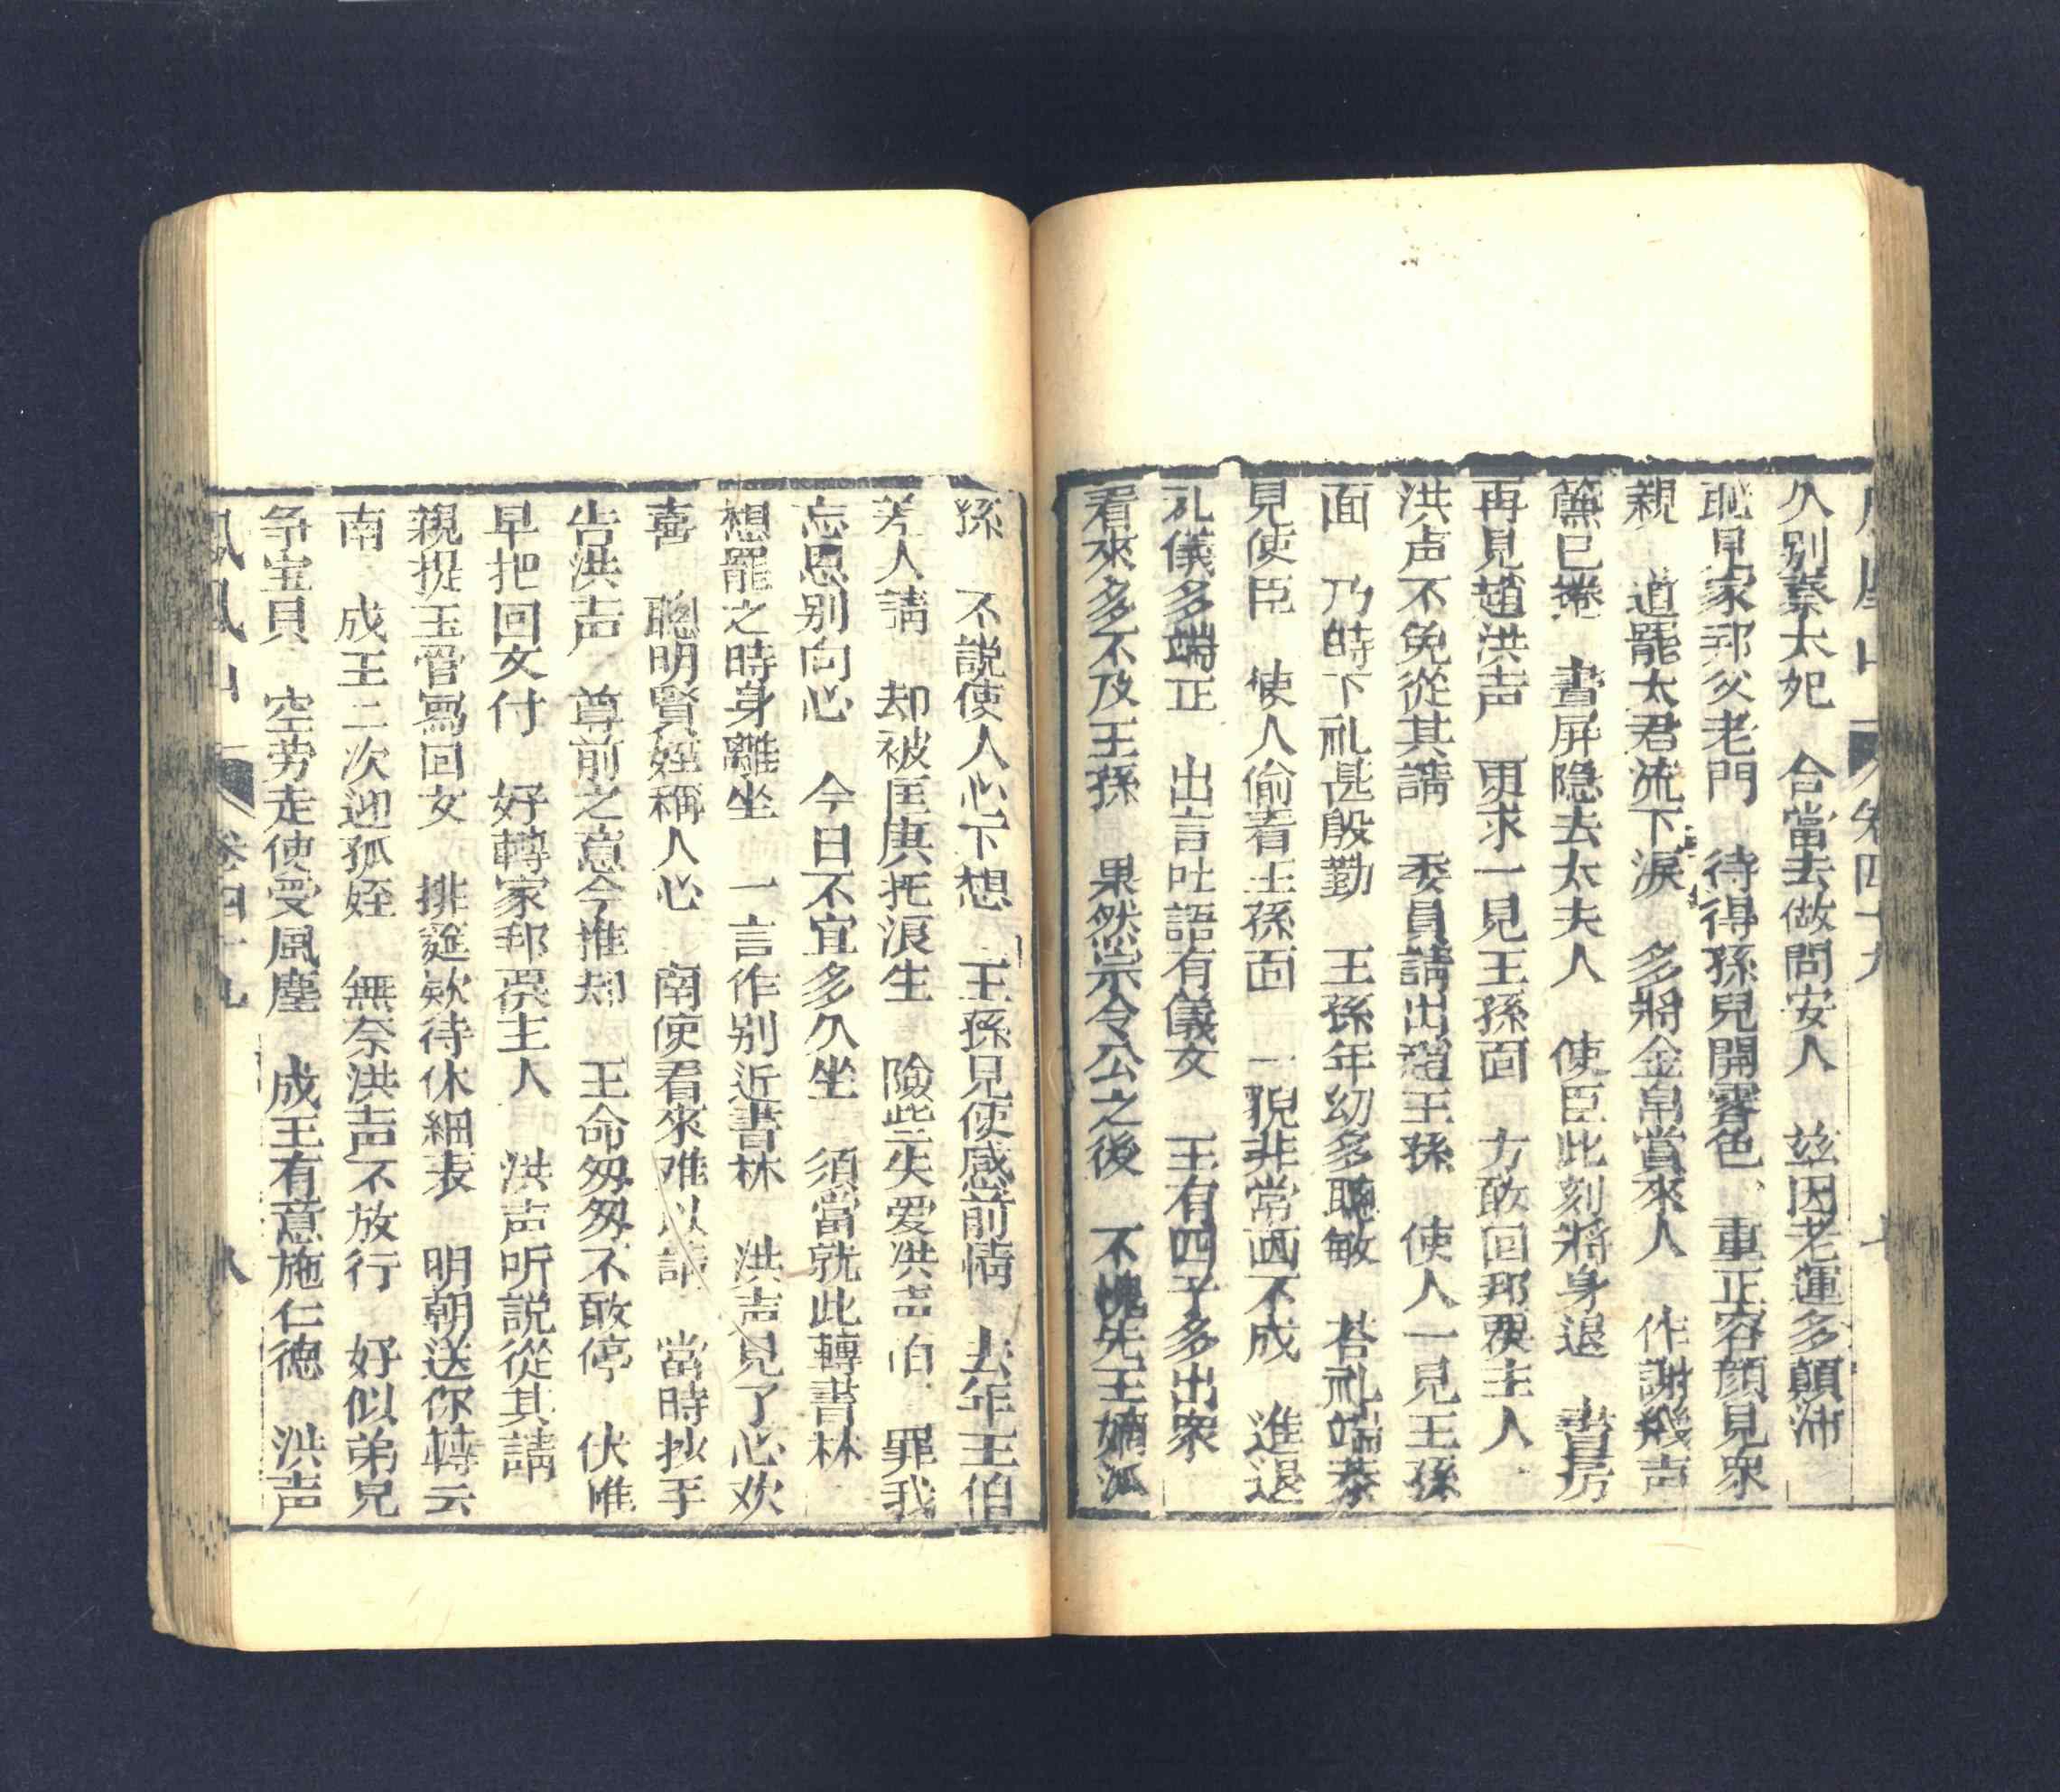 久別秦太妃　合當去做問安人　玆因老運多顛沛
耻見家邦父老門　待得孫兒開霽色　重正容顔見衆
親　道罷太君流下淚　多將金帛賞來人　作謝幾声
簾已捲　畫屏隐去太夫人　使臣此刻將身退　書房
再見趙洪声　更求一見王孫面　方敢回邦禀主人
洪声不免從其請　委員請出趙王孫　使人一見王孫
面　乃時下礼甚殷勤　王孫年幼多聰敏　荅礼端恭
見使臣　使人偷看王孫面　一貎非常画不成　進退
礼儀多端正　出言吐語有儀文　王有四子多出衆
看來多不及王孫　果然崇令公之後　不愧先王嫡派
孫　不説使人心下想　王孫見使感前情　去年王伯
差人請　却被匡庚托浪生　險些失爱洪声伯　罪我
忘恩别向心　今日不宜多久坐　須當就此轉書林
想罷之時身離坐　一言作别近書林　洪声見了心欢
喜　聰明賢姪稱人心　南使看來难以請　當時抄手
告洪声　尊前之意今推却　王命匆匆不敢停　伏惟
早把回文付　好轉家邦禀主人　洪声听説從其請
親提玉管寫回文　排筵欵待休細表　明朝送你轉云
南　成王二次迎孤姪　無奈洪声不放行　好似弟兄
争宝貝　空劳走使受風塵　成王有意施仁德　洪声
鳳凰山　卷四十九　八